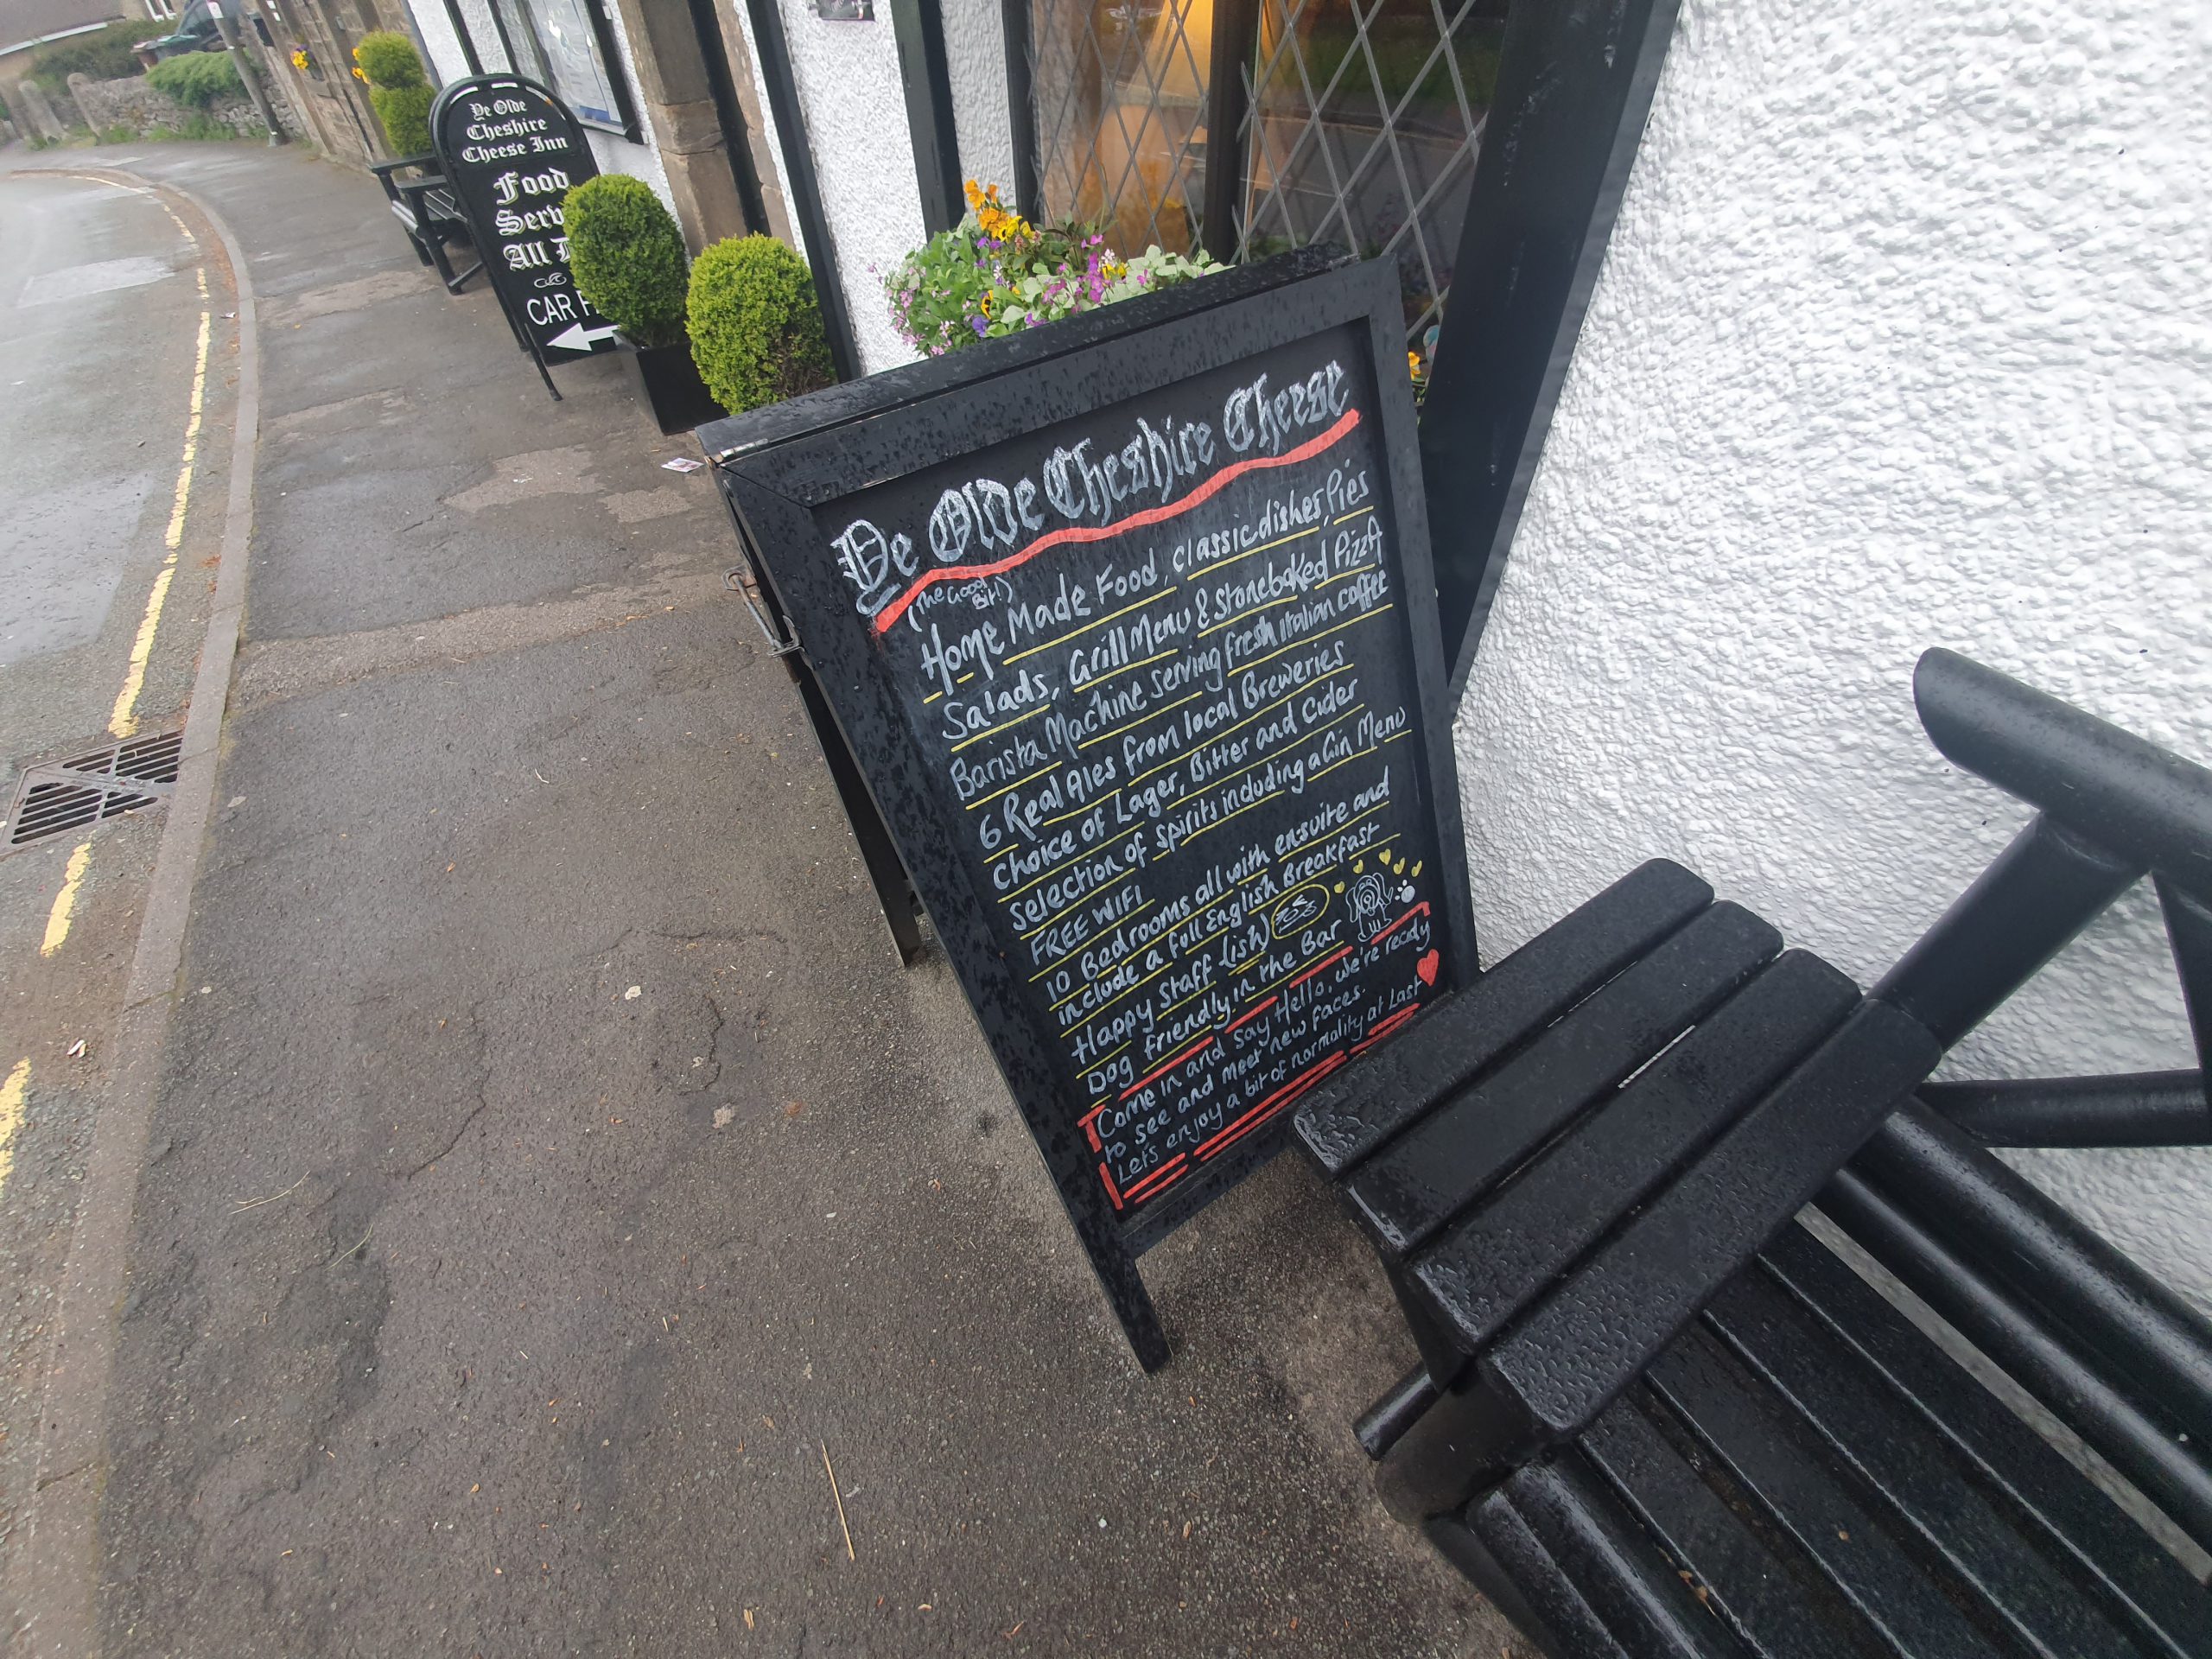 Ye Olde
Cheshire
Cheese Inn
Food
All
CAR
Ye Olde Cheshire Cheese
(The Good Bit!)
Home Made Food, classic dishes, Pies
Salads, Grill Menu & Stonebaked Pizza
Barista Machine serving fresh Italian coffee
6 Real Ales from local Breweries
Choice of Lager, Bitter and Cider
Selection of spirits including a Gin Menu
FREE WIFI
10 Bedrooms all with ensuite and
include a full English Breakfast
Happy Staff (ish)
Dog friendly in the Bar
Come in and say Hello, we're ready
to see and meet new faces.
Lets enjoy a bit of normality at Last